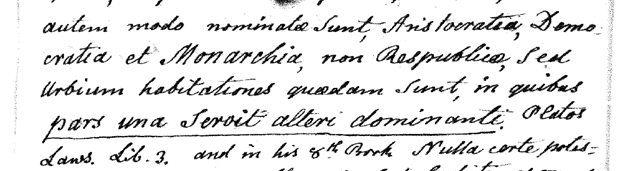 autem modo nominatæ Sunt, Aristocratia, Demo-
cratia et Monarchia, non Respublicæ, Sed
Urbium habitationes quædam Sunt, in quibus
pars una Servit alteri dominanti. Platos
Laws. Lib. 3. and in his 8th Book Nulla certe potes-